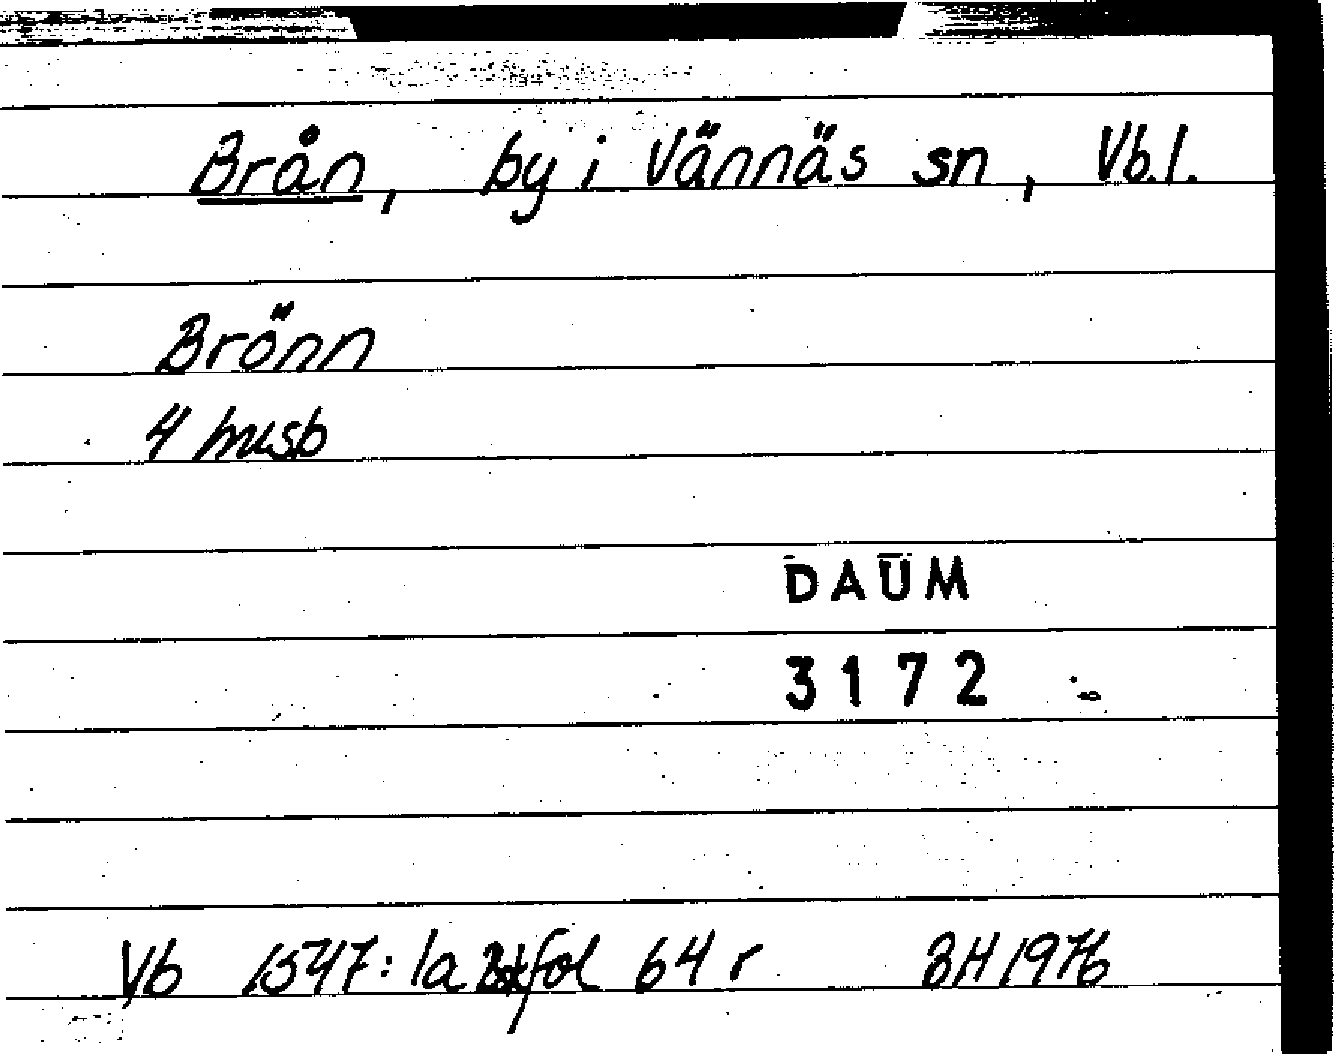 Brån, by i Vännäs sn, Vb.l.
Brönn
4 husb
DAUM
3172
Vb 1547: 1a fol 64 r BH 1976